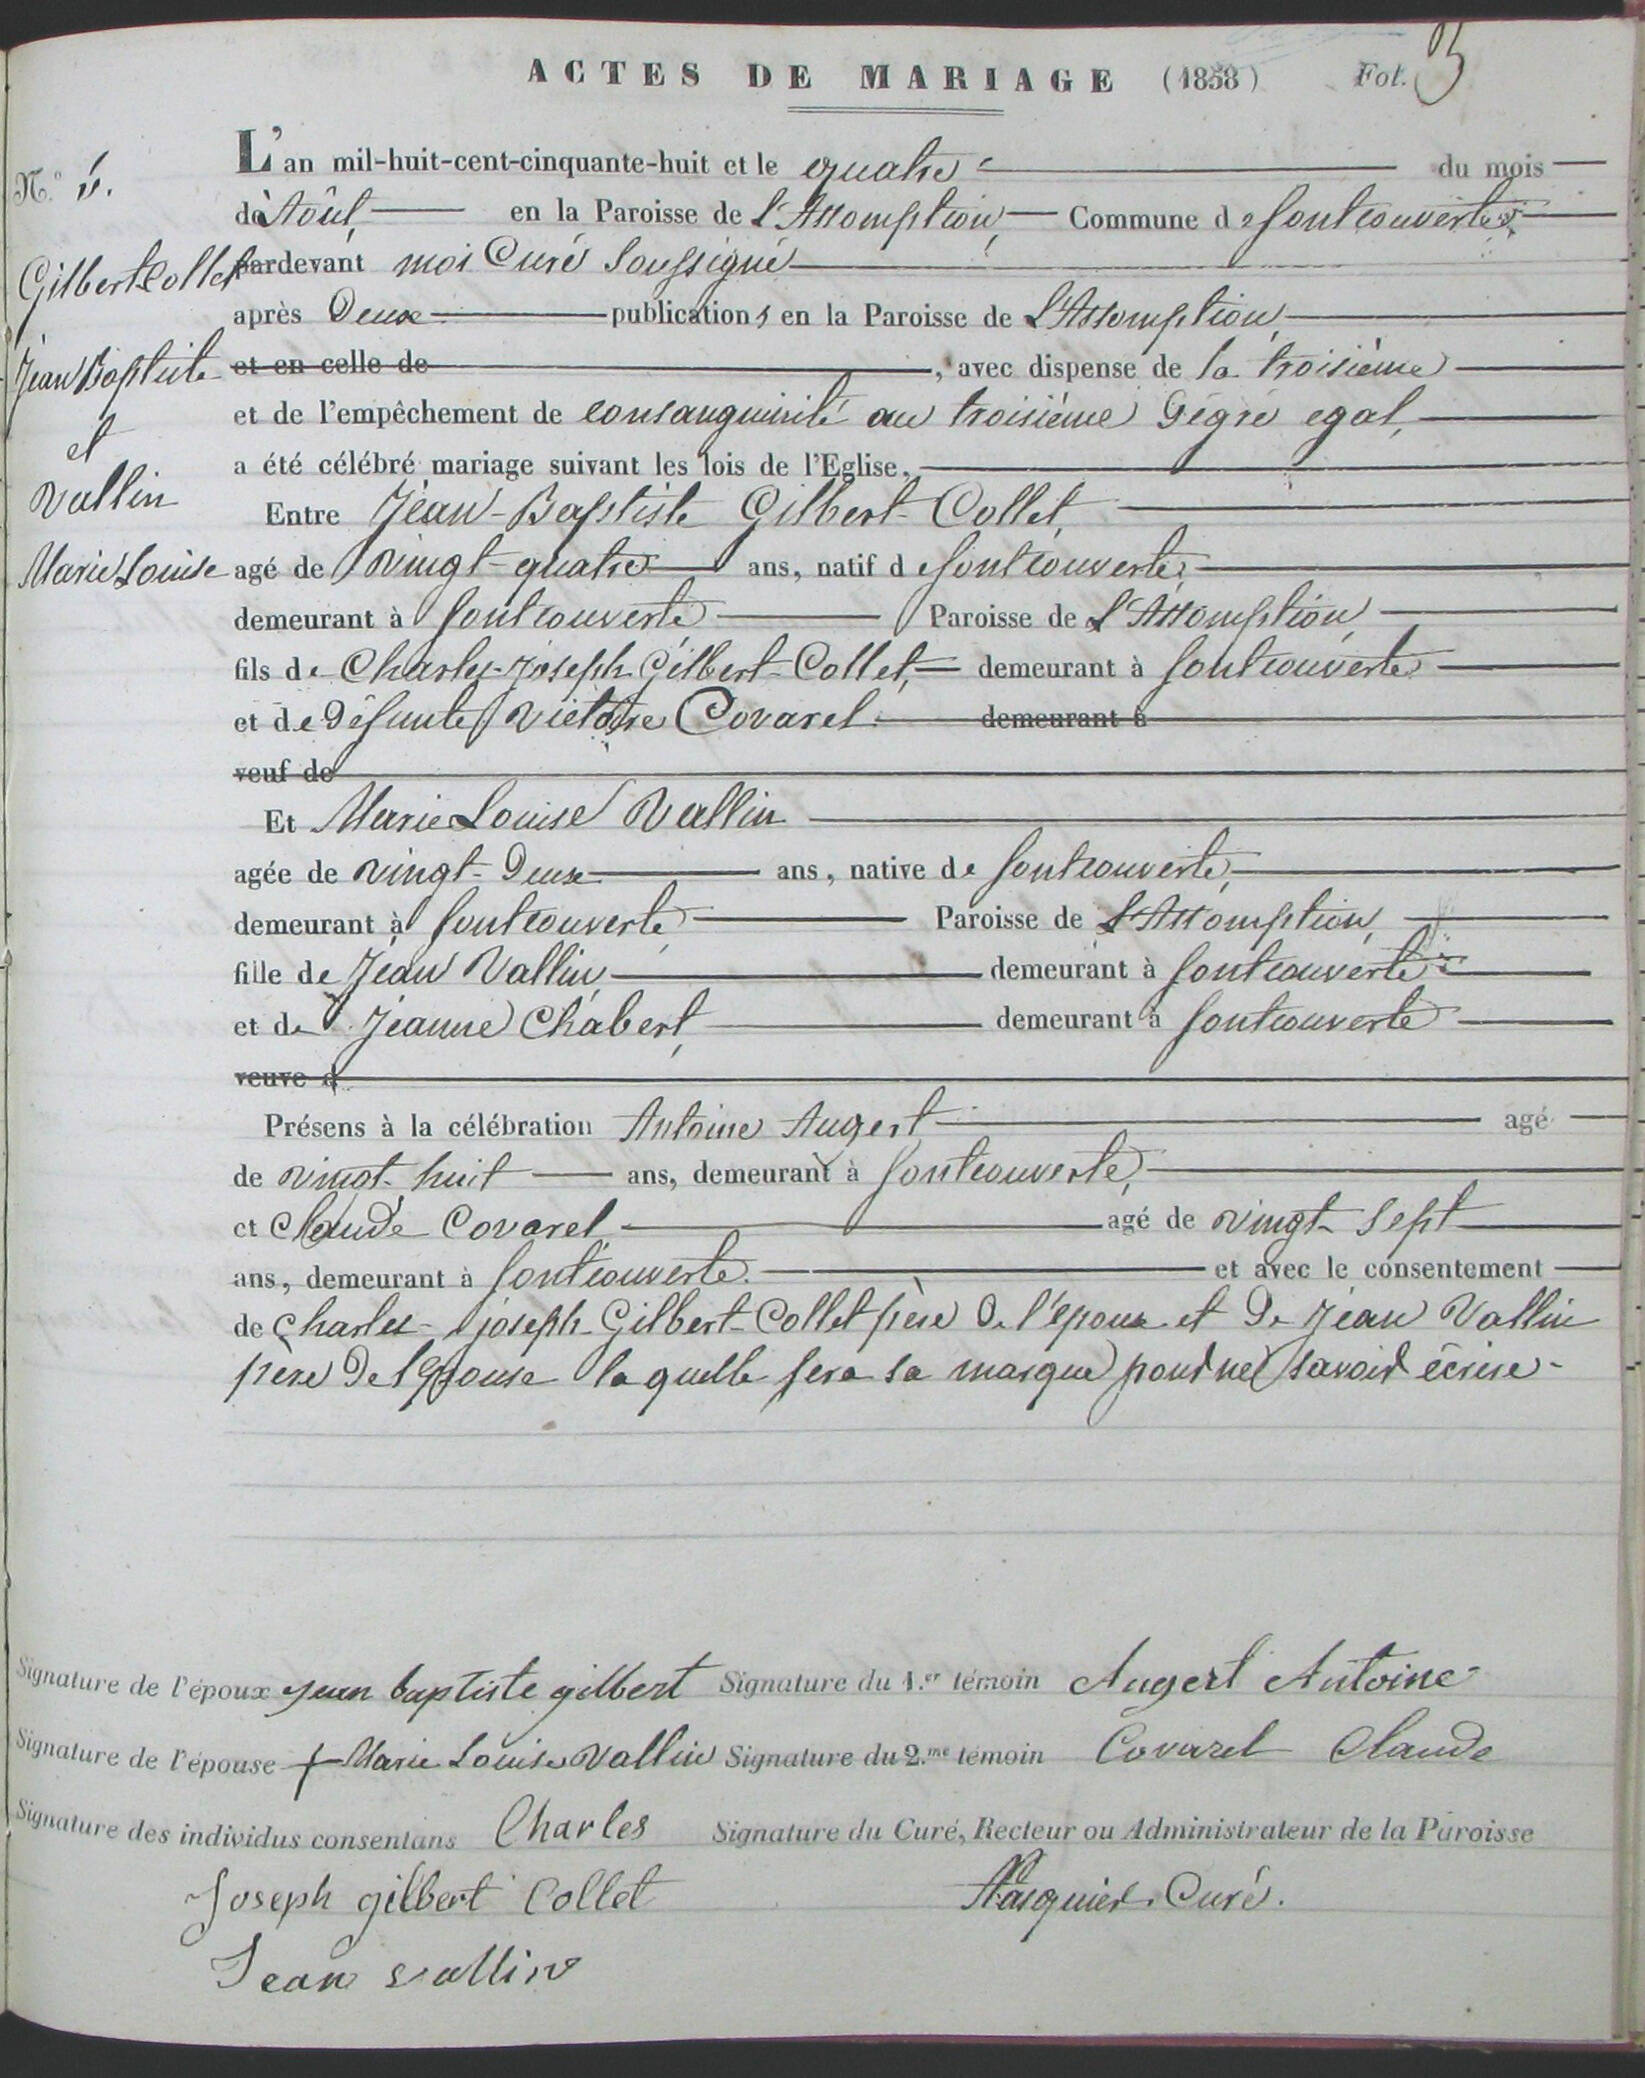 ACTES DE MARIAGE (1858) Fol. 3
N.o
Gilbert Collet
Jean Baptiste
et
Vallin
Marie Louise
L'an mil-huit-cent-cinquante-huit et le quatre du mois
de Août, en la Paroisse de l'Assomption, Commune de fontcouverte
pardevant moi Curé soussigné
après Deux publications en la Paroisse de L'Assomption,
et en celle de , avec dispense de la troisième
et de l'empêchement de consanguinité au troisième Dégré egal,
a été célébré mariage suivant les lois de l'Eglise,
Entre Jean-Baptiste Gilbert-Collet,
agé de Vingt-quatre ans, natif de fontcouverte,
demeurant à fontcouverte Paroisse de L'Assomption
fils de Charles-joseph Gilbert-Collet, demeurant à fontcouverte
et de Défunte Victoire Covarel. demeurant à
veuf de
Et Marie Louise Vallin
agée de vingt-Deux ans, native de fontcouverte,
demeurant à fontcouverte Paroisse de L'Assomption,
fille de Jean Vallin, demeurant à fontcouverte
et de Jeanne Chabert, demeurant à fontcouverte
veuve d
Présens à la célébration Antoine Augert agé
de vingt-huit ans, demeurant à fontcouverte,
et Claude Covarel agé de vingt-sept
ans, demeurant à fontcouverte. et avec le consentement
de Charles-joseph-Gilbert-Collet père De l'époux et De Jean Vallin
père De l'Epouse la quelle fera sa marque pour ne savoir écrire-
Signature de l'époux jean baptiste gilbert Signature du 1.er témoin Augert Antoine
Signature de l'épouse + Marie Louise Vallin Signature du 2.me témoin Covarel Claude
Signature des individus consentans Charles Signature du Curé, Recteur ou Administrateur de la Paroisse
Joseph gilbert Collet Pasquier Curé.
Jean vallin